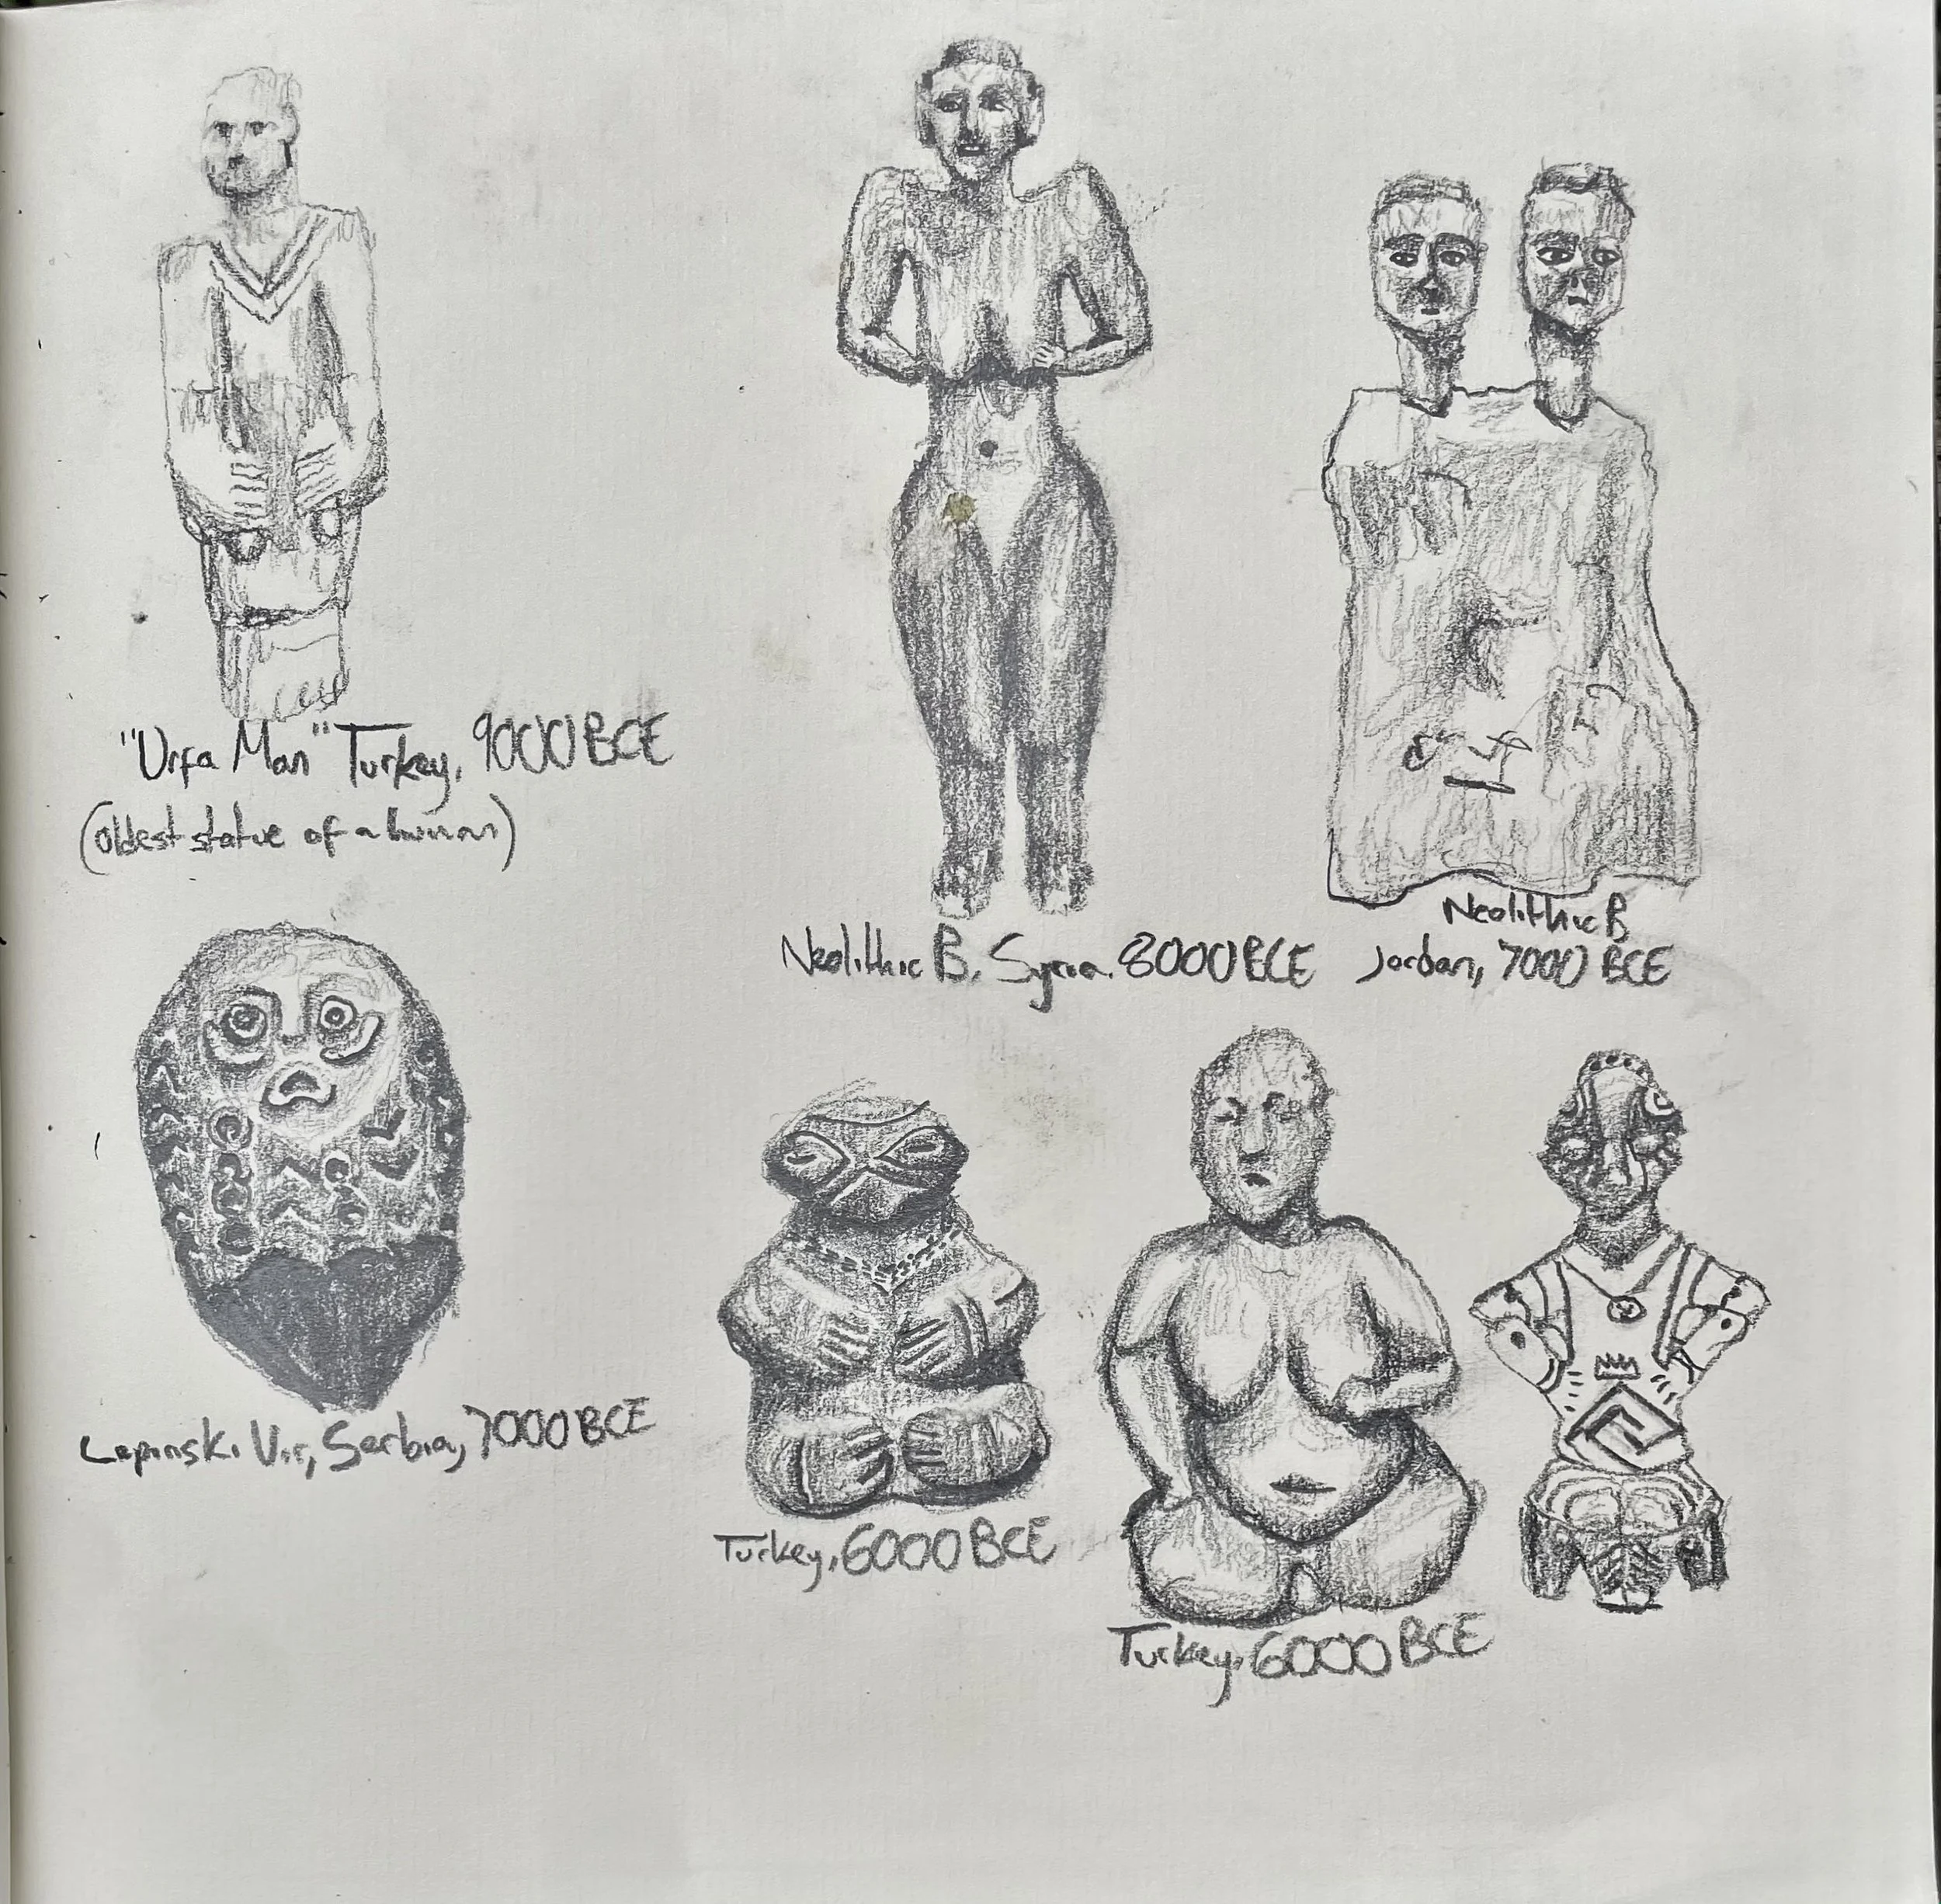 "Urfa Man" Turkey, 9000 BCE
(oldest statue of a human)
Neolithic B. Syria. 8000 BCE
Neolithic B
Jordan, 7000 BCE
Lepinski Vir, Serbia, 7000 BCE
Turkey, 6000 BCE
Turkey, 6000 BCE